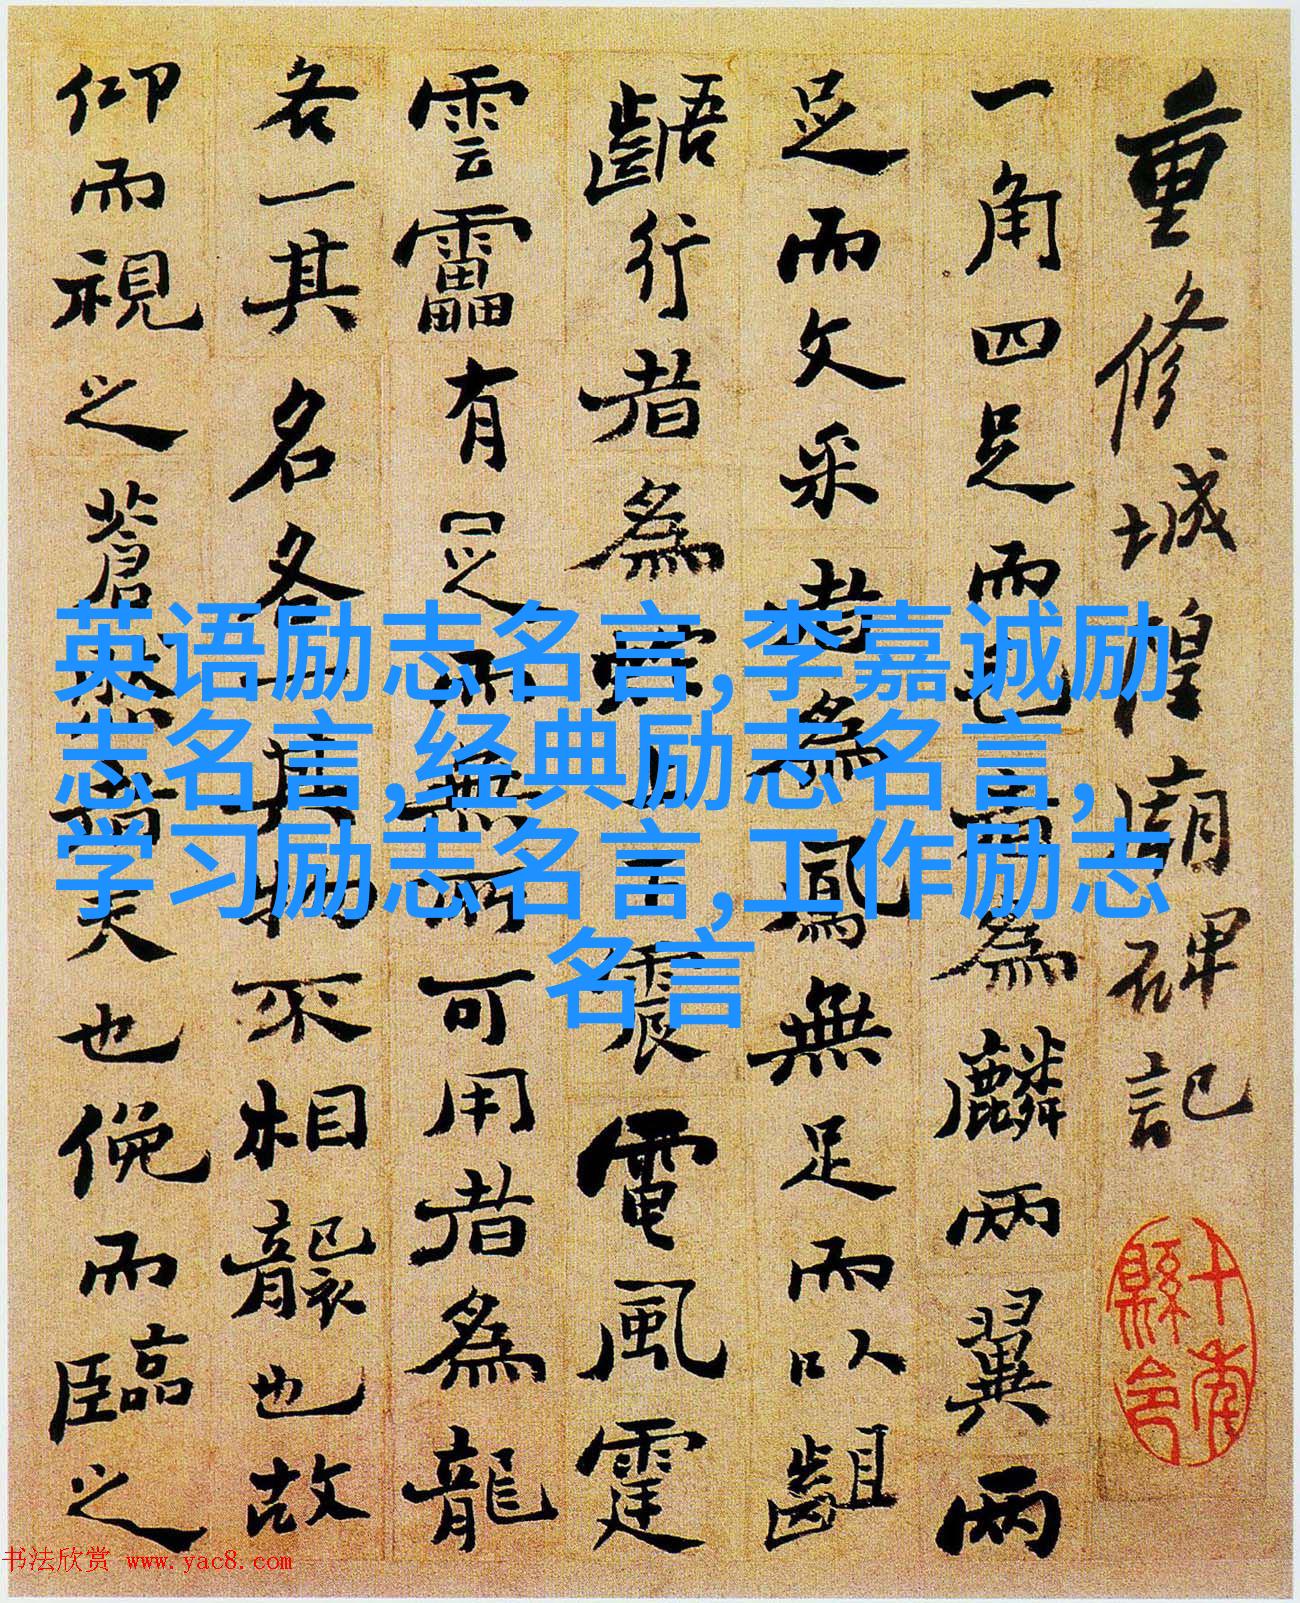 重修城隍廟碑記
一角四足而毛者為麟兩翼兩
足而文采者為鳳無足而以齟
齬行者為蛇上下震電風霆
雲靁有足而無所可用者為龍
各一其名各一其物不相襲也故
仰而視之蒼然者天也俛而臨之
英语励志名言,李嘉诚励
志名言,经典励志名言,
学习励志名言,工作励志
名言
书法欣赏 www.yac8.com